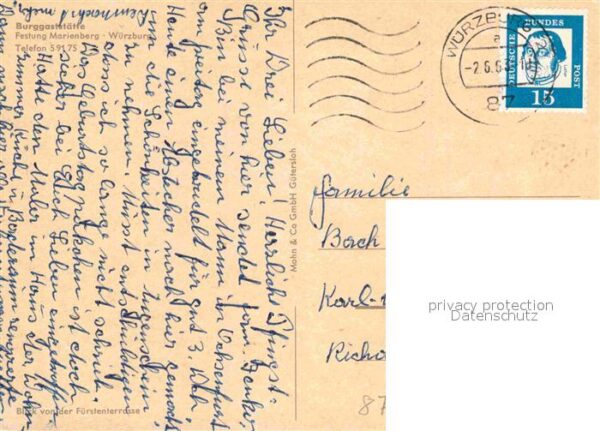 Burggaststätte
Festung Marienberg - Würzburg
Telefon 59175
Ihr Drei Lieben! Herzliche Pfingst-
Grüsse von hier sendet
Bin bei meinem Mann in Ochsenfurt
am Freitag eingetrudelt für gut 3
Heute einen Abstecher nach hier gemacht
um die Schönheiten in Augenschein
zu nehmen. Müsst entschuldigen
dass ich so lange nicht schrieb.
Das Geburtstagspäckchen ist doch
sicher bei Euch Lieben eingetroffen
Hatte den Maler im Haus der Wohn
zimmer Küche, u. Badezimmer
Blick von der Fürstenterrasse
Mohn & Co GmbH Gütersloh
WÜRZBURG
a
-2.6.6
87
DEUTSCHE BUNDESPOST
15
Familie
Bach
Karl-
Richa
87
privacy protection
Datenschutz